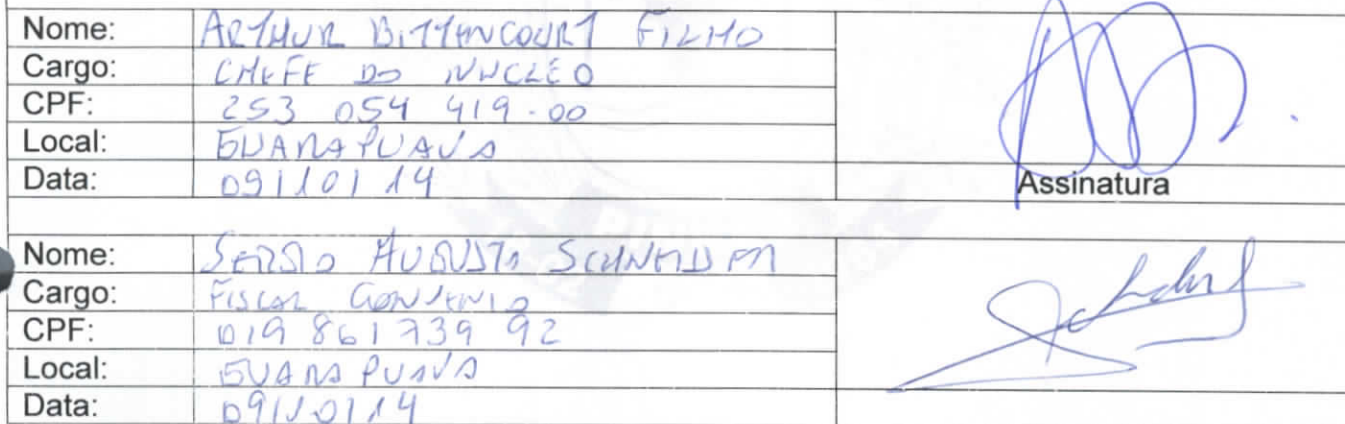 Nome: ARTHUR BITTENCOURT FILHO
Cargo: CHEFE DO NUCLEO
CPF: 253 054 419-00
Local: GUARAPUAVA
Data: 09/10/14
Assinatura
Nome: SERGIO AUGUSTO SCHNEIDER
Cargo: FISCAL CONVENIO
CPF: 019 861 739 92
Local: GUARAPUAVA
Data: 09/10/14